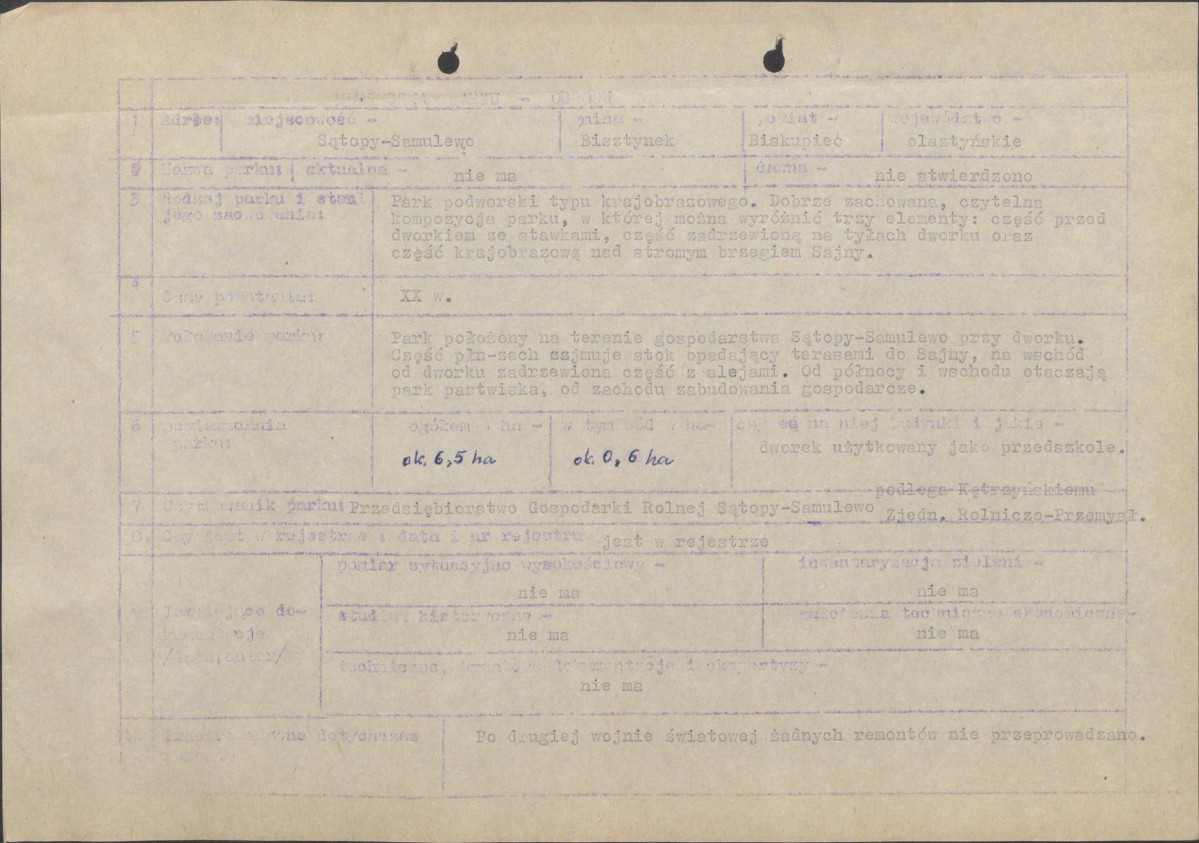 1 adres: miejscowość - gmina - powiat - województwo -
Sątopy-Samulewo Bisztynek Biskupiec olsztyńskie
Nazwa parku: aktualna - nie ma dawna - nie stwierdzono
3 Rodzaj parku i stan jego zachowania:
Park podworski typu krajobrazowego. Dobrze zachowana, czytelna
kompozycja parku, w której można wyróżnić trzy elementy: część przed
dworkiem ze stawkami, część zadrzewioną na tyłach dworku oraz
część krajobrazową nad stromym brzegiem Sajny.
4 Czas powstania: XX w.
5 Położenie parku:
Park położony na terenie gospodarstwa Sątopy-Samulewo przy dworku.
Część płn-zach zajmuje stok opadający terasami do Sajny, na wschód
od dworku zadrzewiona część z alejami. Od północy i wschodu otaczają
park pastwiska, od zachodu zabudowania gospodarcze.
6 powierzchnia parku: ogółem w ha - w tym wód w ha- czy są na niej budynki i jakie -
ok. 6,5 ha ok. 0,6 ha dworek użytkowany jako przedszkole.
podlega Kętrzyńskiemu
7 Użytkownik parku: Przedsiębiorstwo Gospodarki Rolnej Sątopy-Samulewo Zjedn. Rolniczo-Przemysł.
8. Czy jest w rejestrze : data i nr rejestru jest w rejestrze
pomiar sytuacyjno wysokościowy - inwentaryzacja zieleni -
nie ma nie ma
9 Istniejąca do-
kumentacja
studium historyczne - założenia techniczno ekonomiczne-
nie ma nie ma
techniczne, dokumentacje i ekspertyzy -
nie ma
dotychczas
Po drugiej wojnie światowej żadnych remontów nie przeprowadzano.